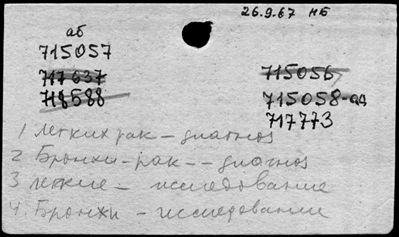 26.9.67 НБ
аб
715057
717637
718588
715056
715058-ад
717773
1 легких рак - диагноз
2 Бронхи - рак - - диагноз
3 легкие - исследование
4. Бронхи - исследование